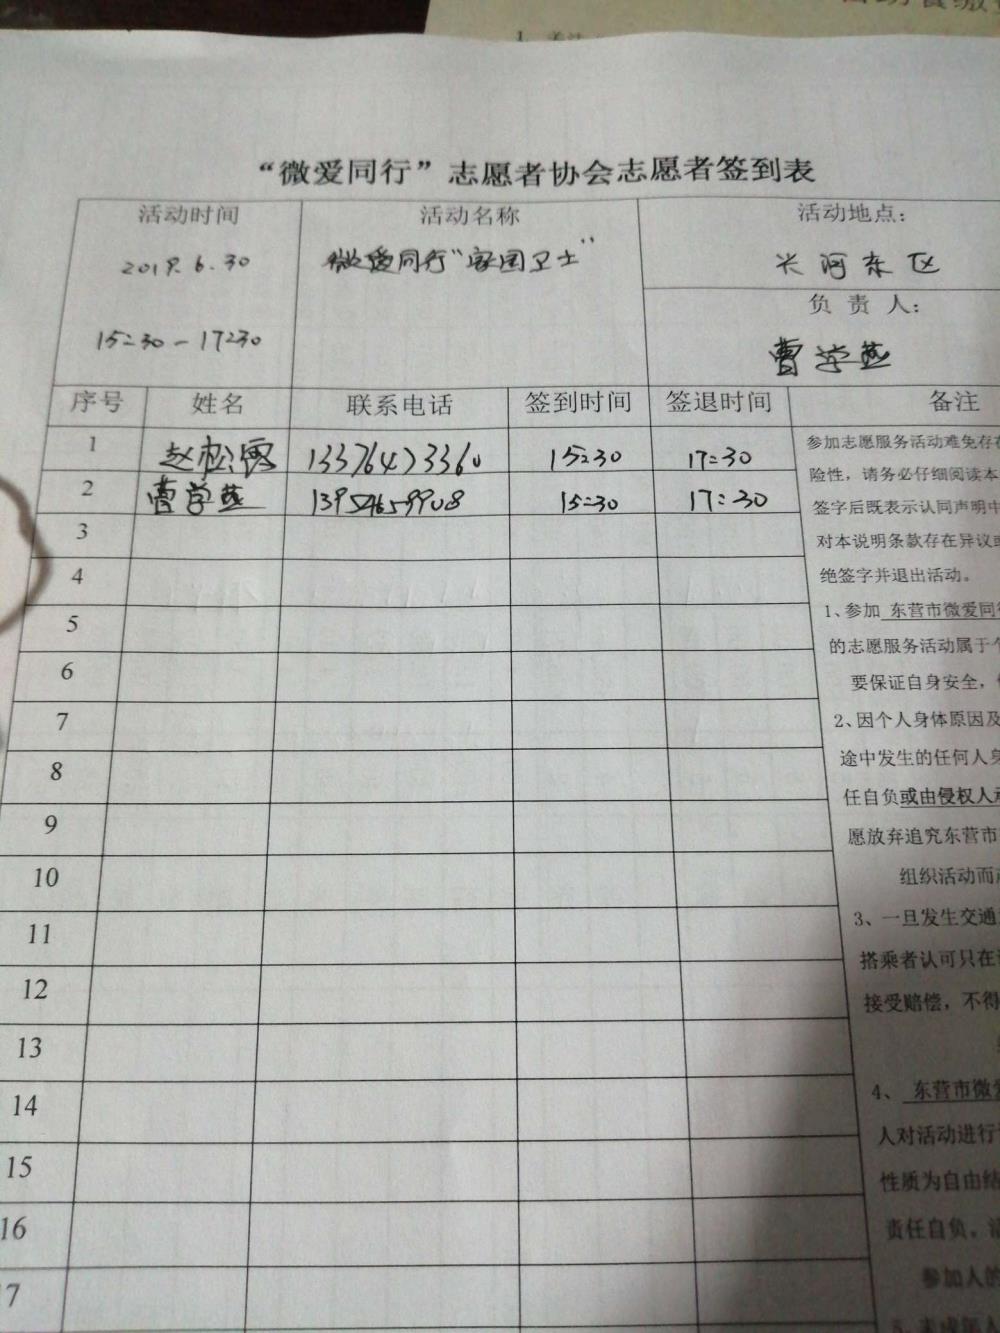 “微爱同行”志愿者协会志愿者签到表
活动时间
2019.6.30
15:30-17:30
活动名称
微爱同行“家园卫士”
活动地点：
长河东区
负 责 人：
曹学燕
序号 姓名 联系电话 签到时间 签退时间 备注
1 赵松霞 13376473360 15:30 17:30
2 曹学燕 13954659908 15:30 17:30
3
4
5
6
7
8
9
10
11
12
13
14
15
16
17
参加志愿服务活动难免存在
险性，请务必仔细阅读本
签字后既表示认同声明中
对本说明条款存在异议或
绝签字并退出活动。
1、参加 东营市微爱同行
的志愿服务活动属于个
要保证自身安全，
2、因个人身体原因及
途中发生的任何人身
任自负或由侵权人承
愿放弃追究东营市
组织活动而
3、一旦发生交通
搭乘者认可只在
接受赔偿，不得
4、 东营市微爱
人对活动进行
性质为自由结
责任自负。活
参加人的
5、未成年人